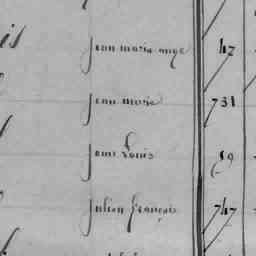 jean marie ange 42
jean marie 731
jean Louis 59
julien françois 747